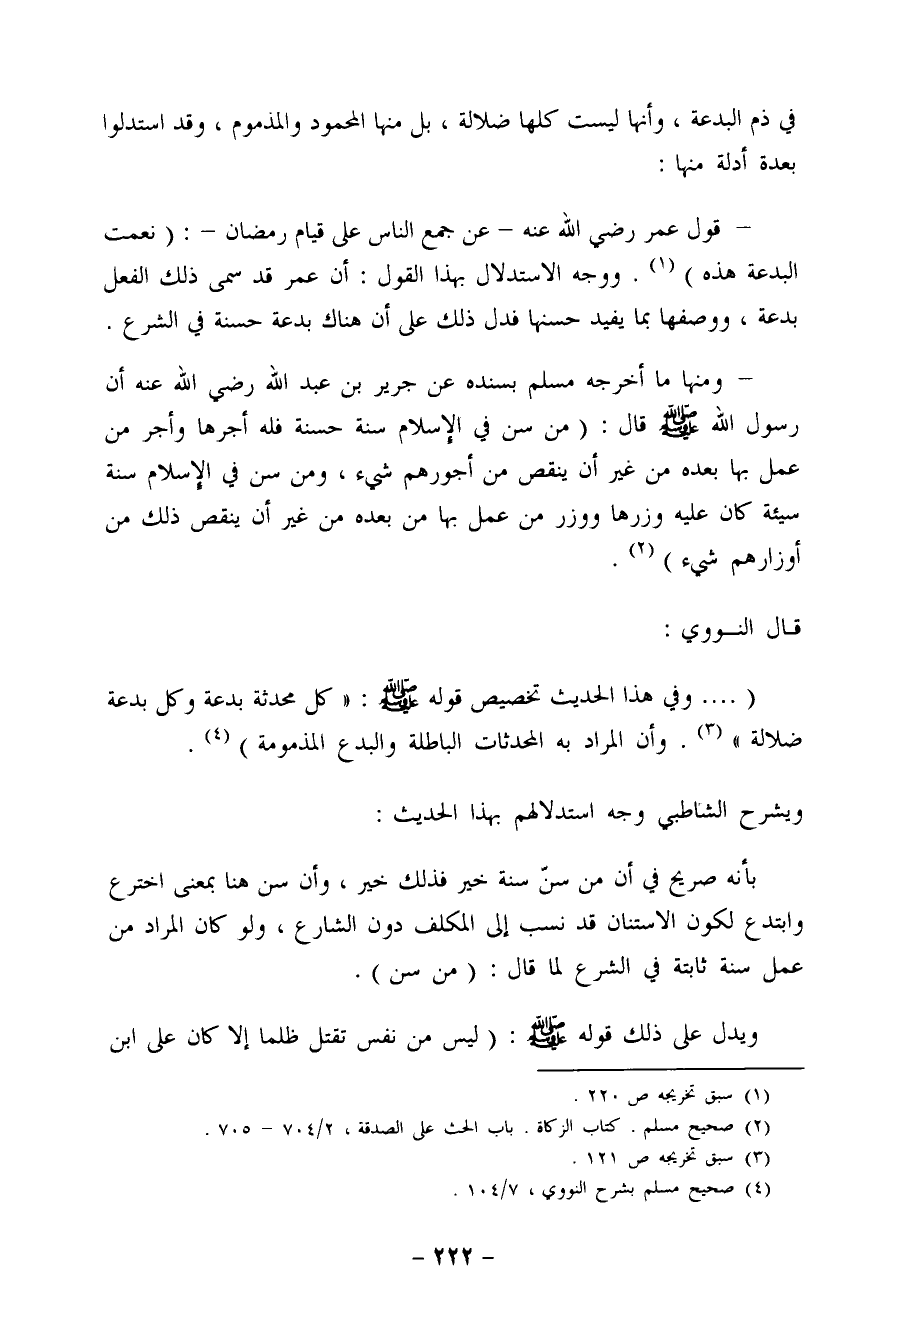 في ذم البدعة ، وأنها ليست كلها ضلالة ، بل منها المحمود والمذموم ، وقد استدلوا
بعدة أدلة منها :
– قول عمر رضي الله عنه – عن جمع الناس على قيام رمضان – : ( نعمت
البدعة هذه ) (١) . ووجه الاستدلال بهذا القول : أن عمر قد سمى ذلك الفعل
بدعة ، ووصفها بما يفيد حسنها فدل ذلك على أن هناك بدعة حسنة في الشرع .
– ومنها ما أخرجه مسلم بسنده عن جرير بن عبد الله رضي الله عنه أن
رسول الله ﷺ قال : ( من سن في الإسلام سنة حسنة فله أجرها وأجر من
عمل بها بعده من غير أن ينقص من أجورهم شيء ، ومن سن في الإسلام سنة
سيئة كان عليه وزرها ووزر من عمل بها من بعده من غير أن ينقص ذلك من
أوزارهم شيء ) (٢) .
قال النــووي :
( .... وفي هذا الحديث تخصيص قوله ﷺ : « كل محدثة بدعة وكل بدعة
ضلالة » (٣) . وأن المراد به المحدثات الباطلة والبدع المذمومة ) (٤) .
ويشرح الشاطبي وجه استدلالهم بهذا الحديث :
بأنه صريح في أن من سنّ سنة خير فذلك خير ، وأن سن هنا بمعنى اخترع
وابتدع لكون الاستنان قد نسب إلى المكلف دون الشارع ، ولو كان المراد من
عمل سنة ثابتة في الشرع لما قال : ( من سن ) .
ويدل على ذلك قوله ﷺ : ( ليس من نفس تقتل ظلما إلا كان على ابن
(١) سبق تخريجه ص ٢٢٠ .
(٢) صحيح مسلم . كتاب الزكاة . باب الحث على الصدقة ، ٧٠٤/٢ – ٧٠٥ .
(٣) سبق تخريجه ص ١٢١ .
(٤) صحيح مسلم بشرح النووي ، ١٠٤/٧ .
– ٢٢٢ –